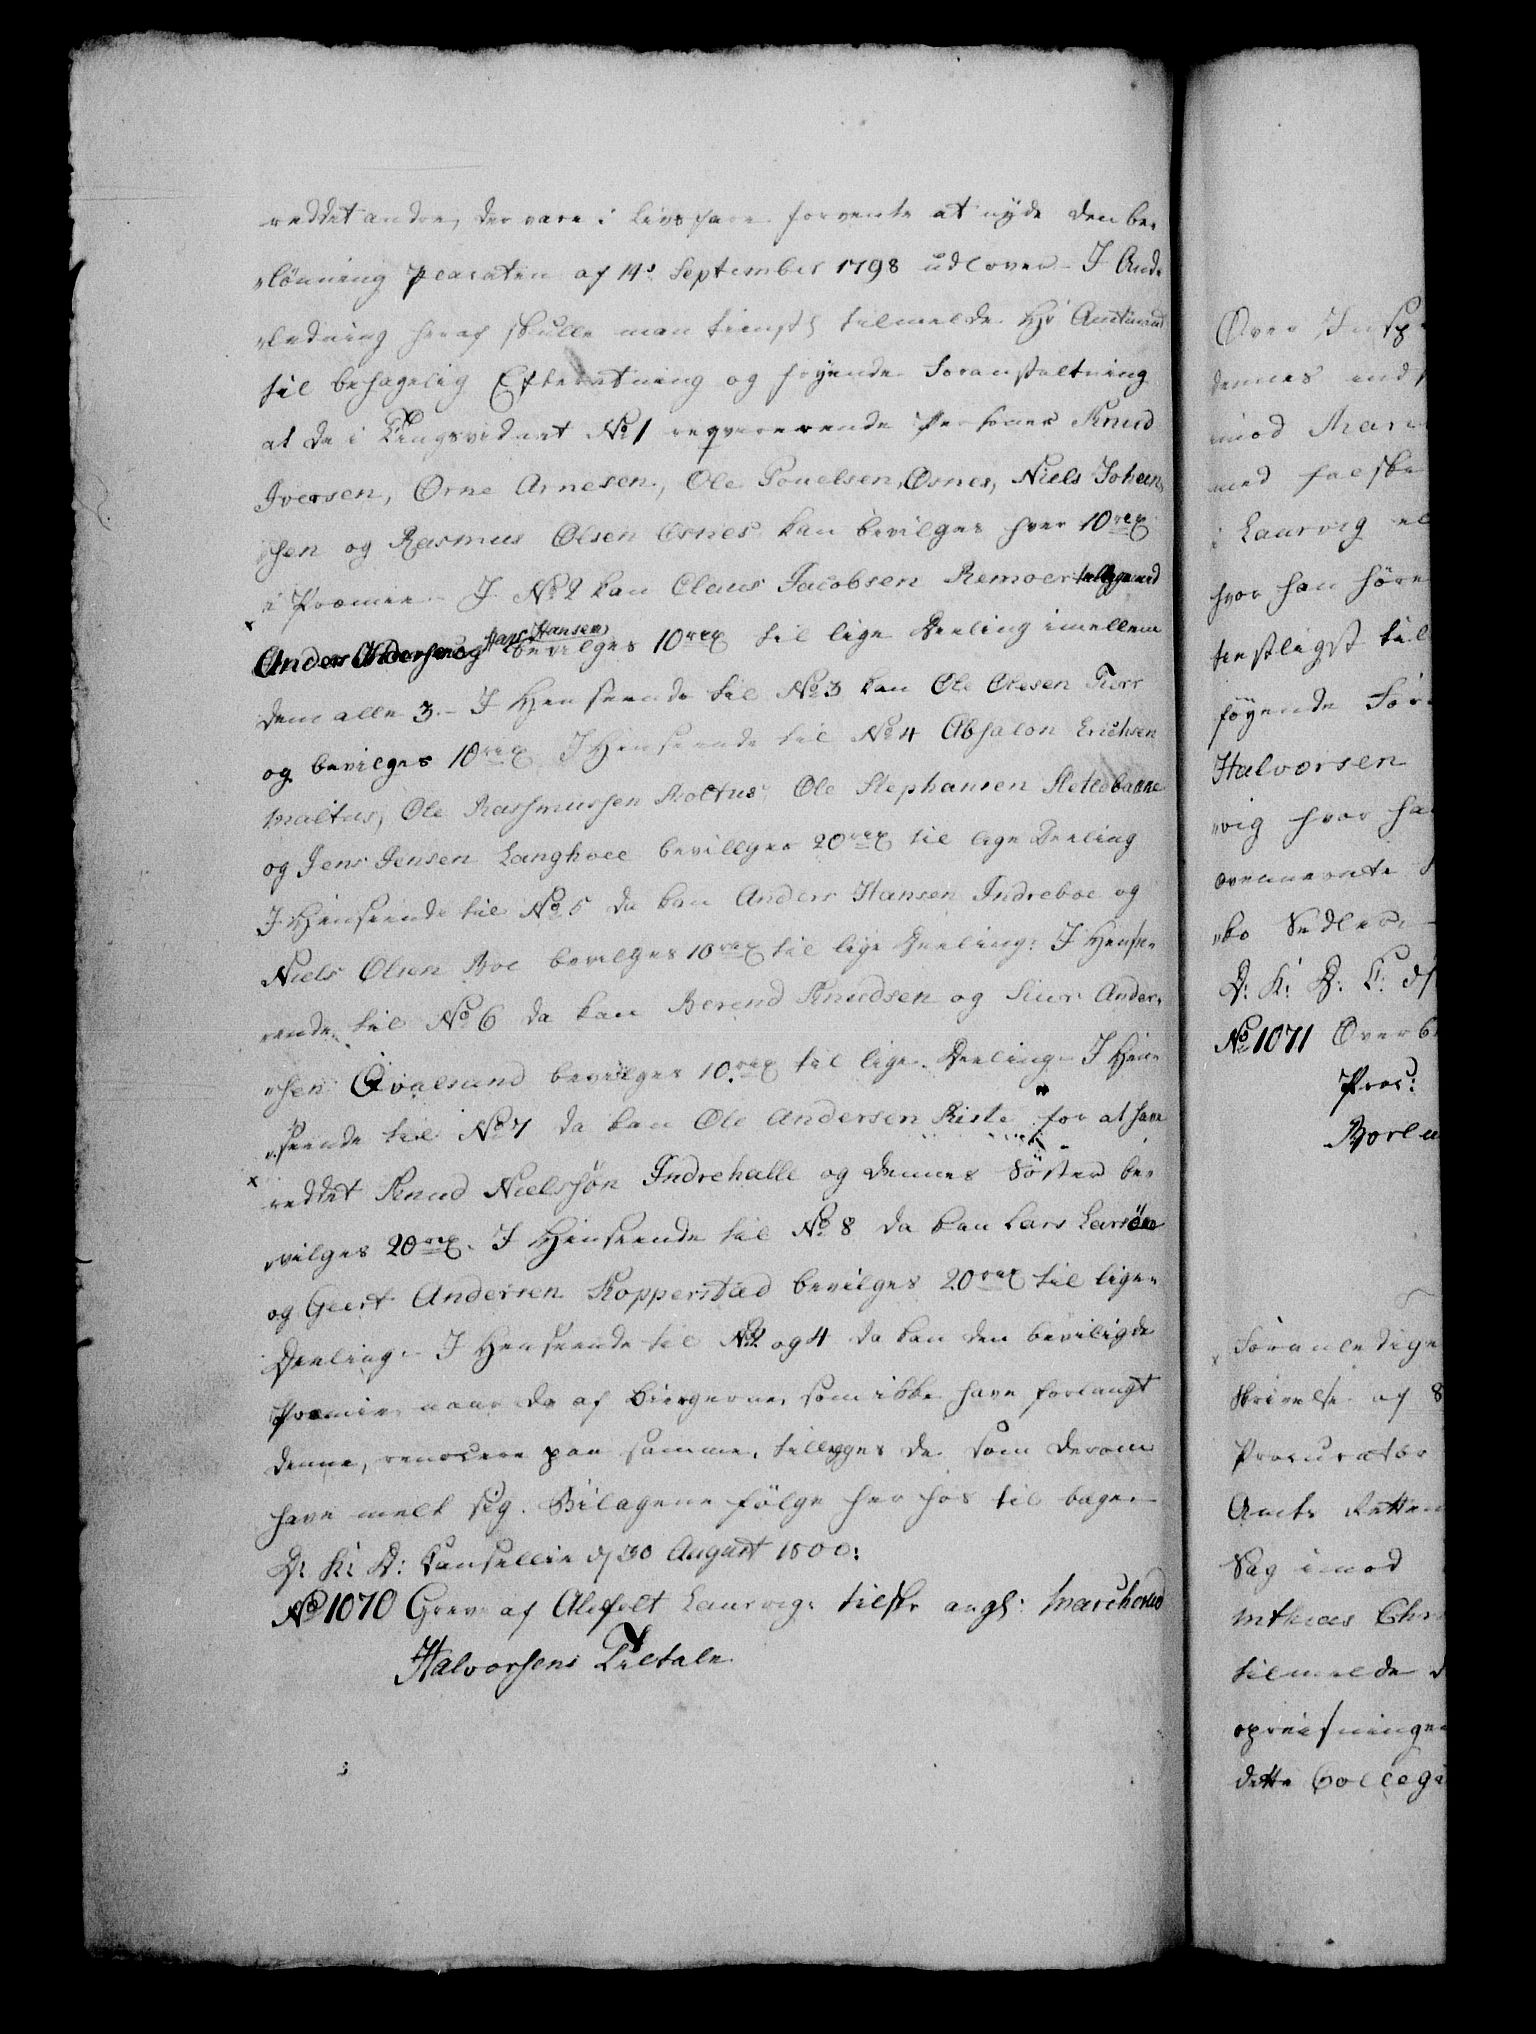 reddet andre, der vare i Livsfare forvente at nyde den be-
lönning Placaten af 14d September 1798 udlover - I Anl-
ledning heraf skulle man tienstl tilmelde Hr Amtmand
til behagelig Efterretning og föyende Foranstaltning
at de i Tingsvidnet No 1 reqvirerende Personer Knud
Iversen, Orne Arnesen, Ole Pouelsen, Osnes, Niels Johan-
sen og Rasmus Olsen Osnes kan bevilges hver 10 rdr
i Præmie. - I No 2 kan Claus Jacobsen Remoer tilligemed
Anders Andersen og Hans Hansen bevilges 10 rdr til lige Deeling imellem
dem alle 3. - I Henseende til No 3 kan Ole Olesen
og bevilges 10 rdr I Henseende til No 4 Absalon Erichsen
Moltus, Ole Rasmussen Moltus, Ole Stephansen Sletlebakke
og Jens Jensen Langhoel bevillges 20 rdr til lige Deeling
I Henseende til No 5 da kan Anders Hansen Indreboe og
Niels Olsen Boe bevilges 10 rdr til lige Deeling: I Hense-
ende til No 6 da kan Berend Knudsen og Siur Ander-
sen Qvalsund bevilges 10 rdr til lige Deeling - I Hen-
seende til No 7 da kan Ole Andersen Riste for at have
reddet Knud Nielssön Indrehalle og dennes Söster be-
vilges 20 rdr. I Henseende til No 8 da kan Lars Larsön
og Geert Andersen Kopperstad bevilges 20 rdr til lige
Deeling. - I Henseende til No 2 og 4 da kan den beviligde
Præmie, naar de af Biergerne, som ikke have forlangt
denne, renocere paa samme, tillegges de som derom
have melt sig. Bilagene følge her hos til bage.
D: K: D: Cansellie d 30 August 1800:
No 1070 Greve af Alefelt Laurvig: tilskr angl: Marcherud
Halvorsens Tiltale
Over Insp
dennes ind
imod Mar
med falske
i Laurvig el
hvor han höre
tienstligst til
föyende For
Halvorsen
vig hvor ha
ovennevnte
ko Sedler. -
D: K: D: C: d
No 1071 Over
Proc:
Foranledige
Skrivelse af 8
Procurator
Amts Retten
Sag imod
Mthias Chr
tilmelde
opreisningen
dette Collegi